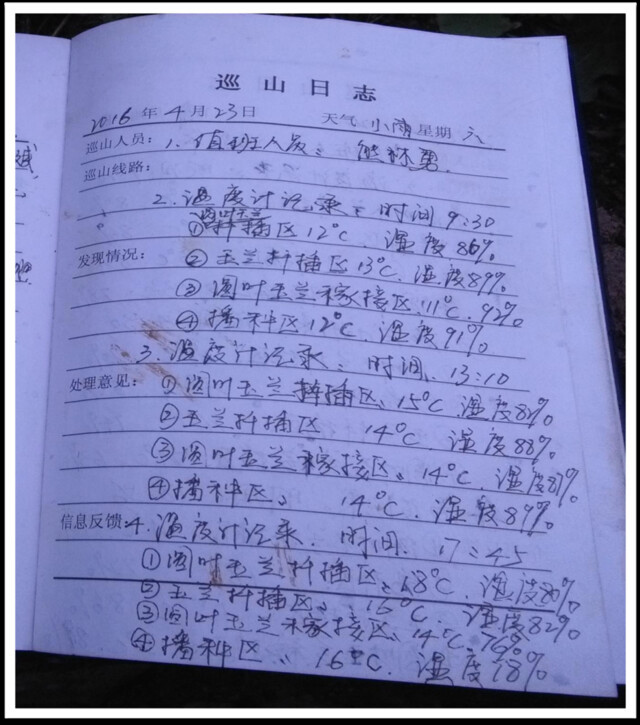 巡山日志
2016年4月23日 天气 小雨 星期 六
巡山人员：1、值班人员：熊林勇
巡山线路：
2、温度计记录：时间 9:30
圆叶玉兰
①扦插区12℃、湿度86%
发现情况：②玉兰扦插区13℃、湿度89%
③圆叶玉兰稼接区、11℃、92%
④播种区12℃、湿度91%
3、温度计记录：时间、13:10
处理意见：①圆叶玉兰扦插区、15℃、湿度89%
②玉兰扦插区 14℃、湿度88%
③圆叶玉兰稼接区、14℃、湿度87%
④播种区、 14℃、湿度89%
信息反馈：4、温度计记录、时间、17:45
①圆叶玉兰扦插区、18℃、湿度80%
②玉兰扦插区、 16℃、湿度82%
③圆叶玉兰稼接区、14℃、79%
④播种区、 16℃、湿度78%